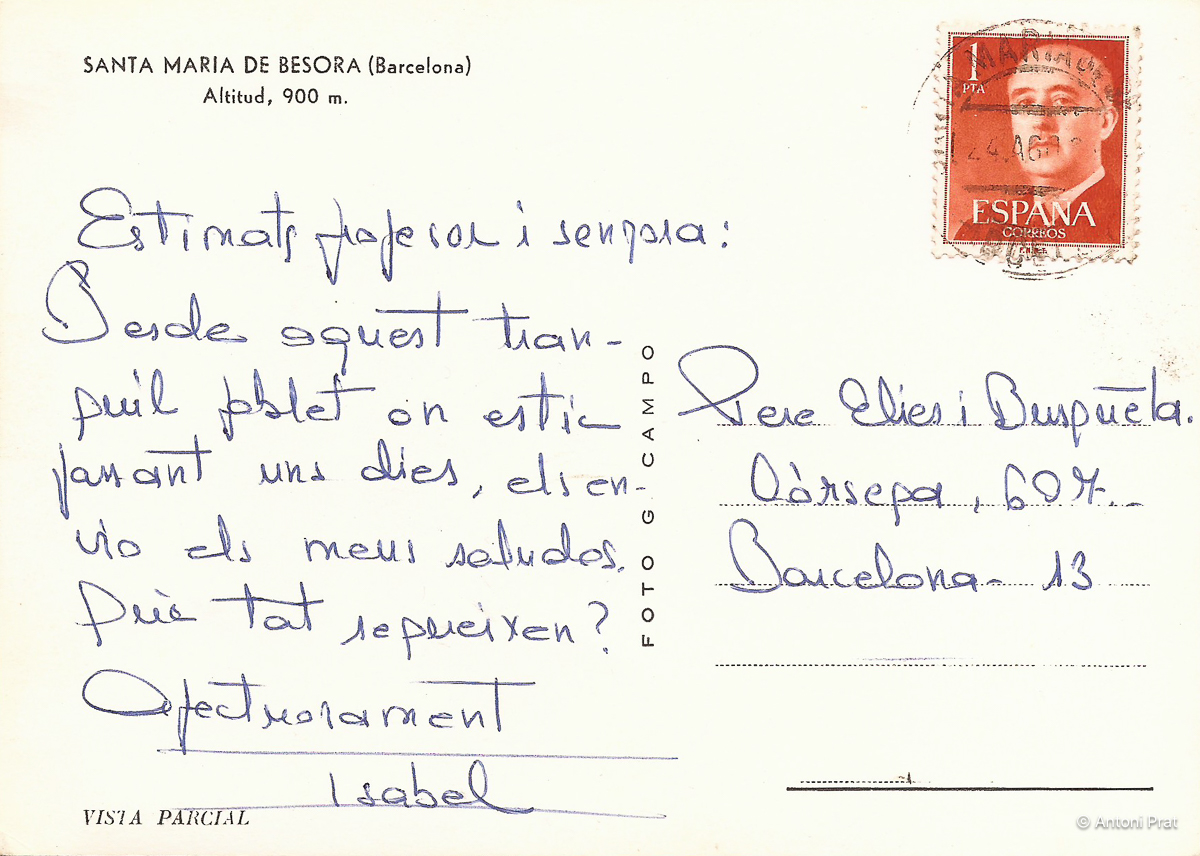 SANTA MARIA DE BESORA (Barcelona)
Altitud, 900 m.
1
PTA
24 AGO
ESPAÑA
CORREOS
Estimats profesor i senyora:
Desde aquest tran-
quil poblet on estic
passant uns dies, els en-
vio els meus saludos.
Què tal segueixen?
Afectuosament
Isabel
VISTA PARCIAL
FOTO G. CAMPO
Pere Elies i Busqueta.
Còrsega, 607
Barcelona - 13
© Antoni Prat